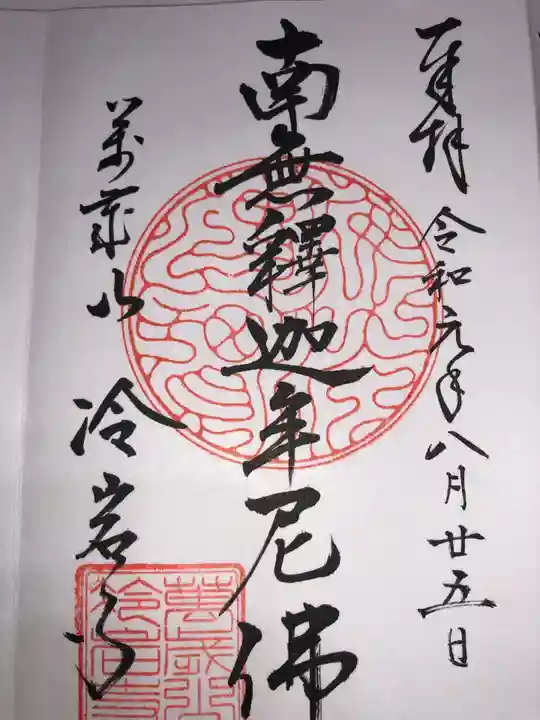 奉拝 令和元年八月廿五日
南無釋迦牟尼佛
萬歳山 冷岩寺